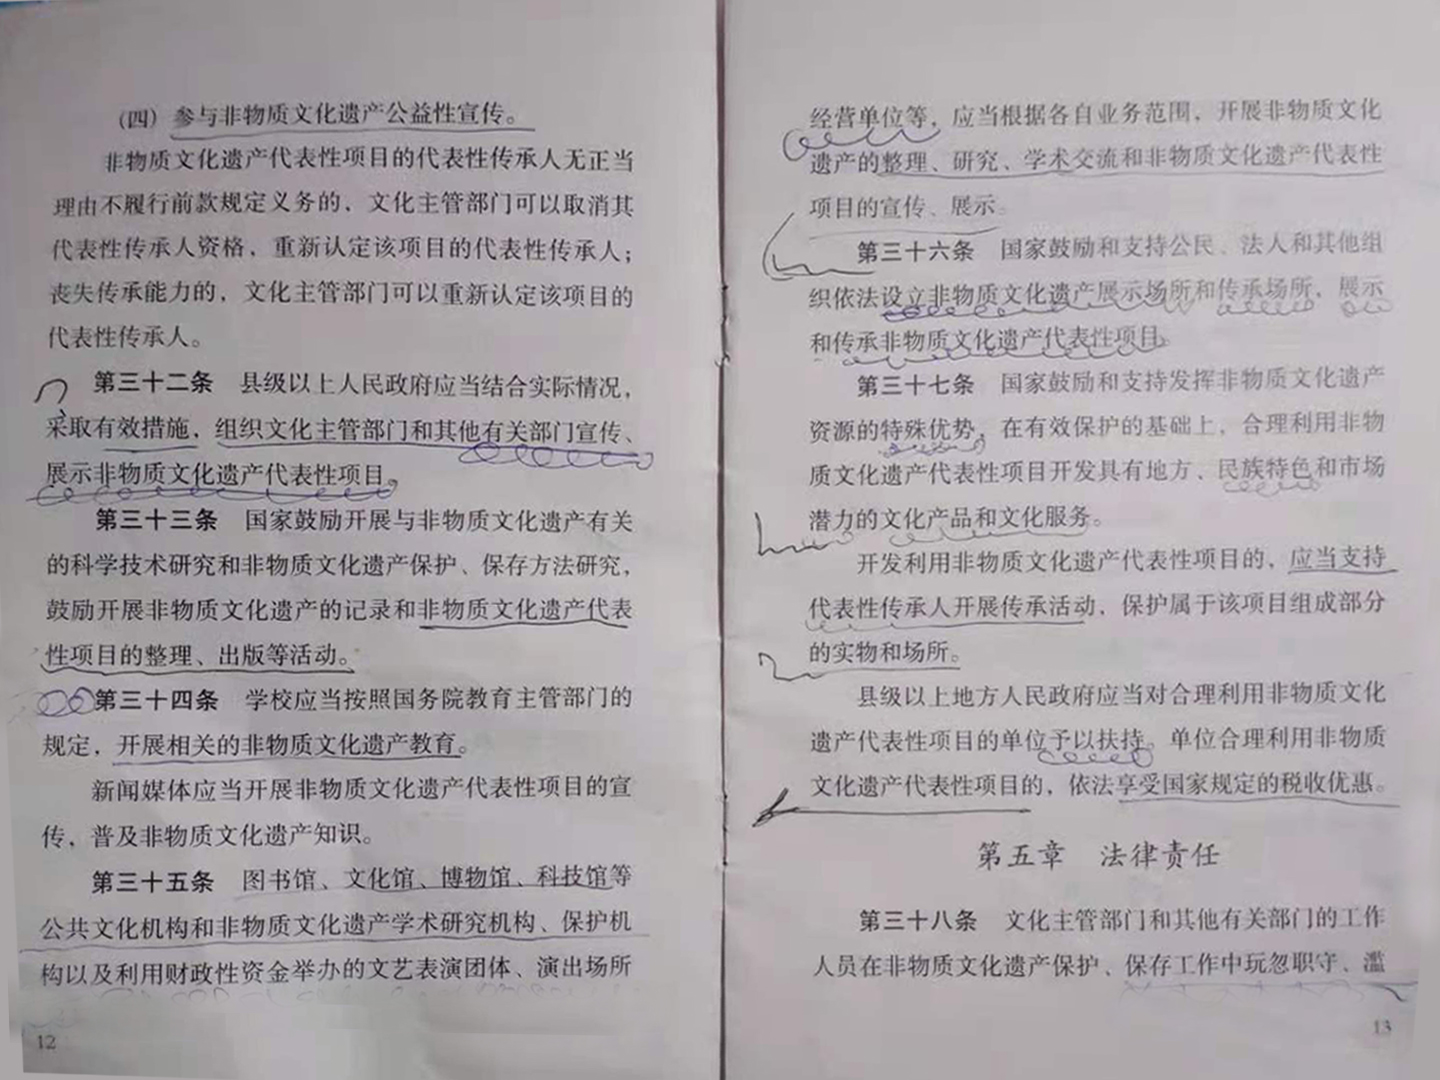 (四) 参与非物质文化遗产公益性宣传。
非物质文化遗产代表性项目的代表性传承人无正当
理由不履行前款规定义务的，文化主管部门可以取消其
代表性传承人资格，重新认定该项目的代表性传承人；
丧失传承能力的，文化主管部门可以重新认定该项目的
代表性传承人。
第三十二条 县级以上人民政府应当结合实际情况，
采取有效措施，组织文化主管部门和其他有关部门宣传、
展示非物质文化遗产代表性项目。
第三十三条 国家鼓励开展与非物质文化遗产有关
的科学技术研究和非物质文化遗产保护、保存方法研究，
鼓励开展非物质文化遗产的记录和非物质文化遗产代表
性项目的整理、出版等活动。
第三十四条 学校应当按照国务院教育主管部门的
规定，开展相关的非物质文化遗产教育。
新闻媒体应当开展非物质文化遗产代表性项目的宣
传，普及非物质文化遗产知识。
第三十五条 图书馆、文化馆、博物馆、科技馆等
公共文化机构和非物质文化遗产学术研究机构、保护机
构以及利用财政性资金举办的文艺表演团体、演出场所
12
经营单位等，应当根据各自业务范围，开展非物质文化
遗产的整理、研究、学术交流和非物质文化遗产代表性
项目的宣传、展示。
第三十六条 国家鼓励和支持公民、法人和其他组
织依法设立非物质文化遗产展示场所和传承场所，展示
和传承非物质文化遗产代表性项目。
第三十七条 国家鼓励和支持发挥非物质文化遗产
资源的特殊优势，在有效保护的基础上，合理利用非物
质文化遗产代表性项目开发具有地方、民族特色和市场
潜力的文化产品和文化服务。
开发利用非物质文化遗产代表性项目的，应当支持
代表性传承人开展传承活动，保护属于该项目组成部分
的实物和场所。
县级以上地方人民政府应当对合理利用非物质文化
遗产代表性项目的单位予以扶持。单位合理利用非物质
文化遗产代表性项目的，依法享受国家规定的税收优惠。
第五章 法律责任
第三十八条 文化主管部门和其他有关部门的工作
人员在非物质文化遗产保护、保存工作中玩忽职守、滥
13